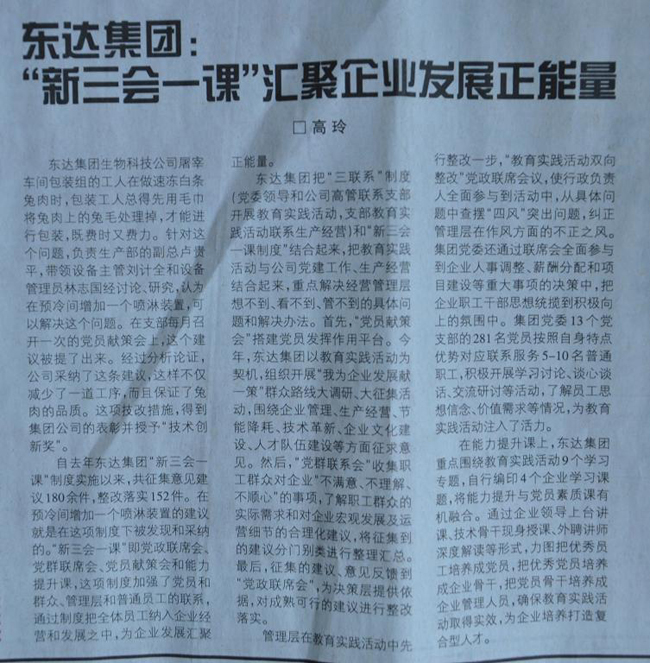 东达集团：
“新三会一课”汇聚企业发展正能量
□高玲
东达集团生物科技公司屠宰
车间包装组的工人在做速冻白条
兔肉时，包装工人总得先用毛巾
将兔肉上的兔毛处理掉，才能进
行包装，既费时又费力。针对这
个问题，负责生产部的副总卢贵
平，带领设备主管刘计全和设备
管理员林志国经讨论、研究，认为
在预冷间增加一个喷淋装置，可
以解决这个问题。在支部每月召
开一次的党员献策会上，这个建
议被提了出来。经过分析论证，
公司采纳了这条建议，这样不仅
减少了一道工序，而且保证了兔
肉的品质。这项技改措施，得到
集团公司的表彰并授予“技术创
新奖”。
自去年东达集团“新三会一
课”制度实施以来，共征集意见建
议180余件，整改落实152件。在
预冷间增加一个喷淋装置的建议
就是在这项制度下被发现和采纳
的。“新三会一课”即党政联席会、
党群联席会、党员献策会和能力
提升课，这项制度加强了党员和
群众、管理层和普通员工的联系，
通过制度把全体员工纳入企业经
营和发展之中，为企业发展汇聚
正能量。
东达集团把“三联系”制度
(党委领导和公司高管联系支部
开展教育实践活动，支部教育实
践活动联系生产经营)和“新三会
一课制度”结合起来，把教育实践
活动与公司党建工作、生产经营
结合起来，重点解决经营管理层
想不到、看不到、管不到的具体问
题和解决办法。首先，“党员献策
会”搭建党员发挥作用平台。今
年，东达集团以教育实践活动为
契机，组织开展“我为企业发展献
一策”群众路线大调研、大征集活
动，围绕企业管理、生产经营、节
能降耗、技术革新、企业文化建
设、人才队伍建设等方面征求意
见。然后，“党群联系会”收集职
工群众对企业“不满意、不理解、
不顺心”的事项，了解职工群众的
实际需求和对企业宏观发展及运
营细节的合理化建议，将征集到
的建议分门别类进行整理汇总。
最后，征集的建议、意见反馈到
“党政联席会”，为决策层提供依
据，对成熟可行的建议进行整改
落实。
管理层在教育实践活动中先
行整改一步，“教育实践活动双向
整改”党政联席会议，使行政负责
人全面参与到活动中，从具体问
题中查摆“四风”突出问题，纠正
管理层在作风方面的不正之风。
集团党委还通过联席会全面参与
到企业人事调整、薪酬分配和项
目建设等重大事项的决策中，把
企业职工干部思想统揽到积极向
上的氛围中。集团党委13个党
支部的281名党员按照自身特点
优势对应联系服务5-10名普通
职工，积极开展学习讨论、谈心谈
话、交流研讨等活动，了解员工思
想信念、价值需求等情况，为教育
实践活动注入了活力。
在能力提升课上，东达集团
重点围绕教育实践活动9个学习
专题，自行编印4个企业学习课
题，将能力提升与党员素质课有
机融合。通过企业领导上台讲
课、技术骨干现身授课、外聘讲师
深度解读等形式，力图把优秀员
工培养成党员，把优秀党员培养
成企业骨干，把党员骨干培养成
企业管理人员，确保教育实践活
动取得实效，为企业培养打造复
合型人才。